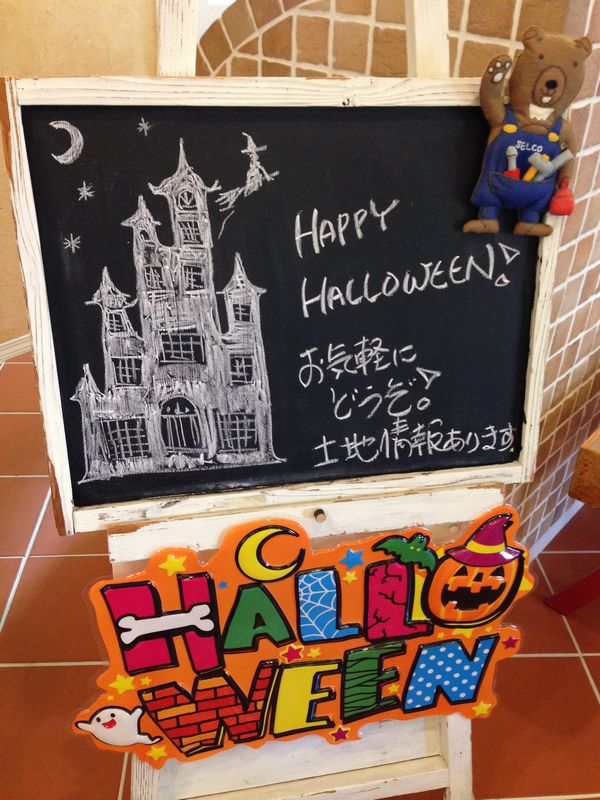 HAPPY
HALLOWEEN!
お気軽に
どうぞ。
土地情報あります
SELCO
HALLO
WEEN